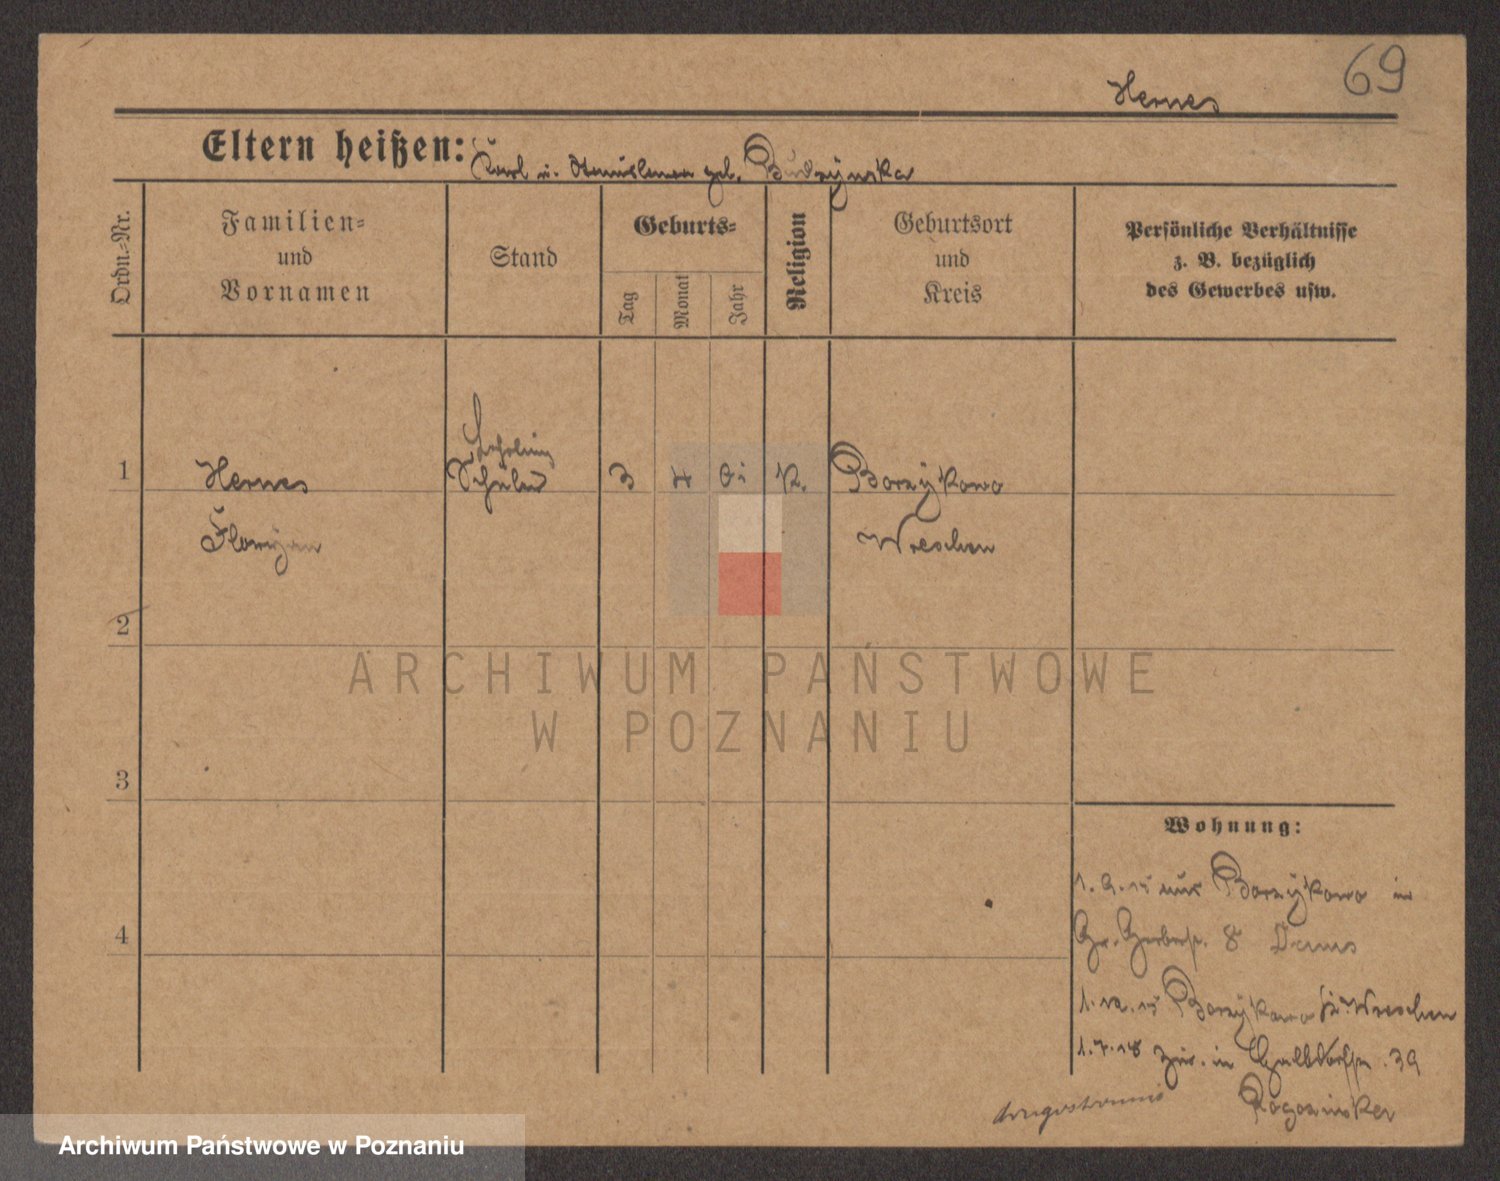 69
Hernes
Eltern heißen: Karl u. Stanislawa geb. Budzynska
Ordn.-Nr.
Familien-
und
Vornamen
Stand
Geburts-
Tag
Monat
Jahr
Religion
Geburtsort
und
Kreis
Persönliche Verhältnisse
z. B. bezüglich
des Gewerbes usw.
Lehrling
1 Hernes Schüler 3 4 01 k. Borzykowo
Floryan Wreschen
2
ARCHIWUM PAŃSTWOWE
W POZNANIU
3
Wohnung:
1. 9. 15 aus Borzykowo in
Gr. Gerberstr. 8
4
1. 12. 15 Borzykowo Kr. Wreschen
1. 7. 18 zur. in 39
Rogozinska
Archiwum Państwowe w Poznaniu